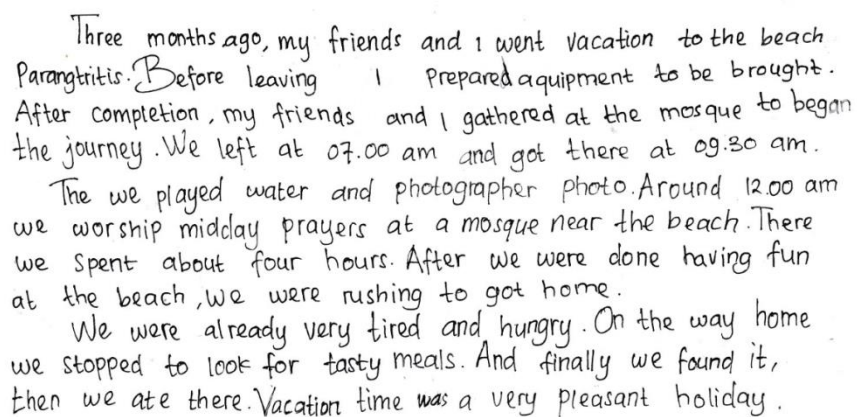 Three months ago, my friends and I went vacation to the beach
Parangtritis. Before leaving I prepared aquipment to be brought.
After completion, my friends and I gathered at the mosque to began
the journey. We left at 07.00 am and got there at 09.30 am.
The we played water and photographer photo. Around 12.00 am
we worship midday prayers at a mosque near the beach. There
we spent about four hours. After we were done having fun
at the beach, we were rushing to got home.
We were already very tired and hungry. On the way home
we stopped to look for tasty meals. And finally we found it,
then we ate there. Vacation time was a very pleasant holiday.